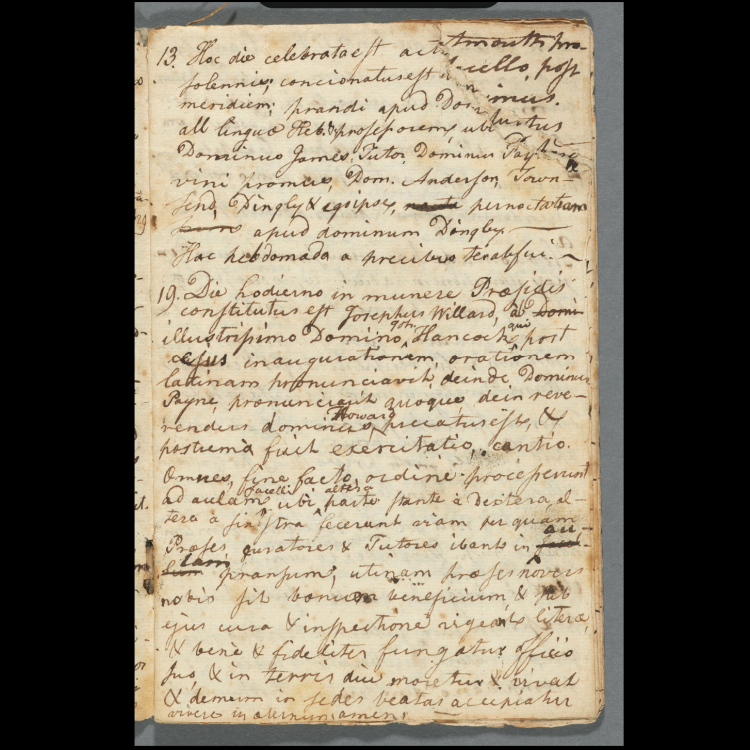 13. Hoc die celebrata est actu
solennis; concionatus est
meridiem; prandi apud Dom
all linguæ Heb. professorem, ubi
Dominus James, Tutor, Dominus
vini promere, Dom. Anderson, Town-
send, Dingly & egoipse, pernoctatam
apud dominum Dingley.
Hac hebdomada a precibus ter abfui.
19. Die hodierno in munere Præsidis
constitutus est Josephus Willard, a Domi
illustrissimo Domino, Joh. Hancock, qui post
ejus inaugurationem, orationem
latinam pronunciavit, deinde Dominus
Payne, pronunciavit quoque, dein reve-
rendus dominus Howard precatus est, &
postrema fuit exercitatio, cantio.
Omnes, fine facto, ordine processerunt
ad aulam sacelli ubi parte altera stante a dextera, al-
tera a sinistra fecerunt viam per quam
Præses, curatores & Tutores ibant in au-
lam pransum, utinam præses novus
nobis sit bonum beneficium & sub
ejus cura & inspectione vigeant literæ,
& bene & fideliter fungatur officio
suo, & in terris diu moretur & vivat
& demum in sedes beatas accipiatur
vivere in æternum, amen.
tmouth pro
cello, post
imus.